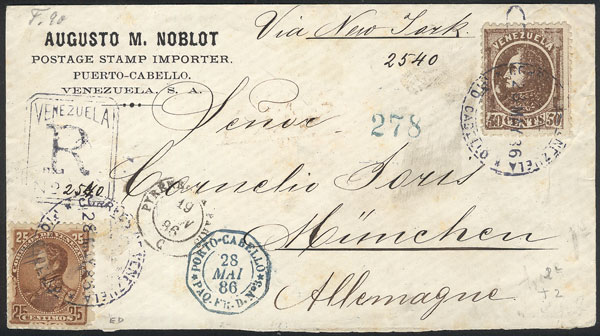 F. 90
Via New York.
AUGUSTO M. NOBLOT
POSTAGE STAMP IMPORTER.
PUERTO-CABELLO.
VENEZUELA, S. A.
2540
VENEZUELA
50 CENTS 50
278
VENEZUELA
R
2540
Señor
Cornelio Joris
München
Allemagne
PORTO-CABELLO
28
MAI
86
PAQ. FR. D. Nº3
19
86
25 25
25 CENTIMOS 25
ED
T2